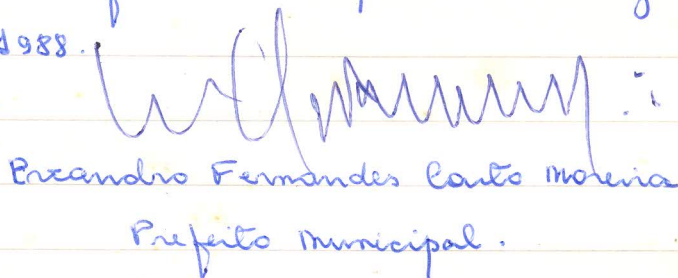 1988.
Fernandes Couto Moreira
Prefeito Municipal.